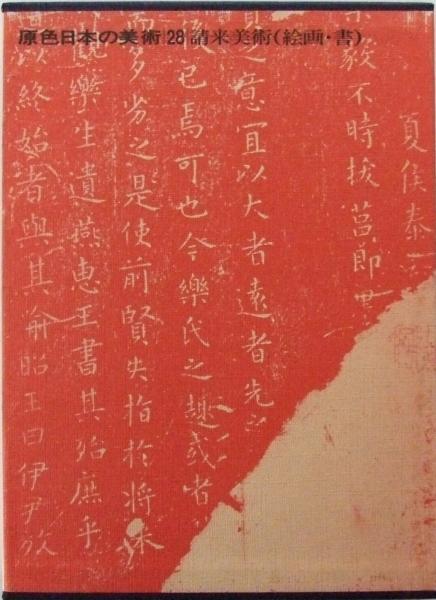 原色日本の美術 28 請来美術(絵画・書)
夏侯泰
毅不時拔莒即墨
賢之意宜以大者遠者先之
後已焉可也今樂氏之趣或者
而多劣之是使前賢失指於將来
觀樂生遺燕惠王書其殆庶乎
以終始者與其喻昭王曰伊尹放